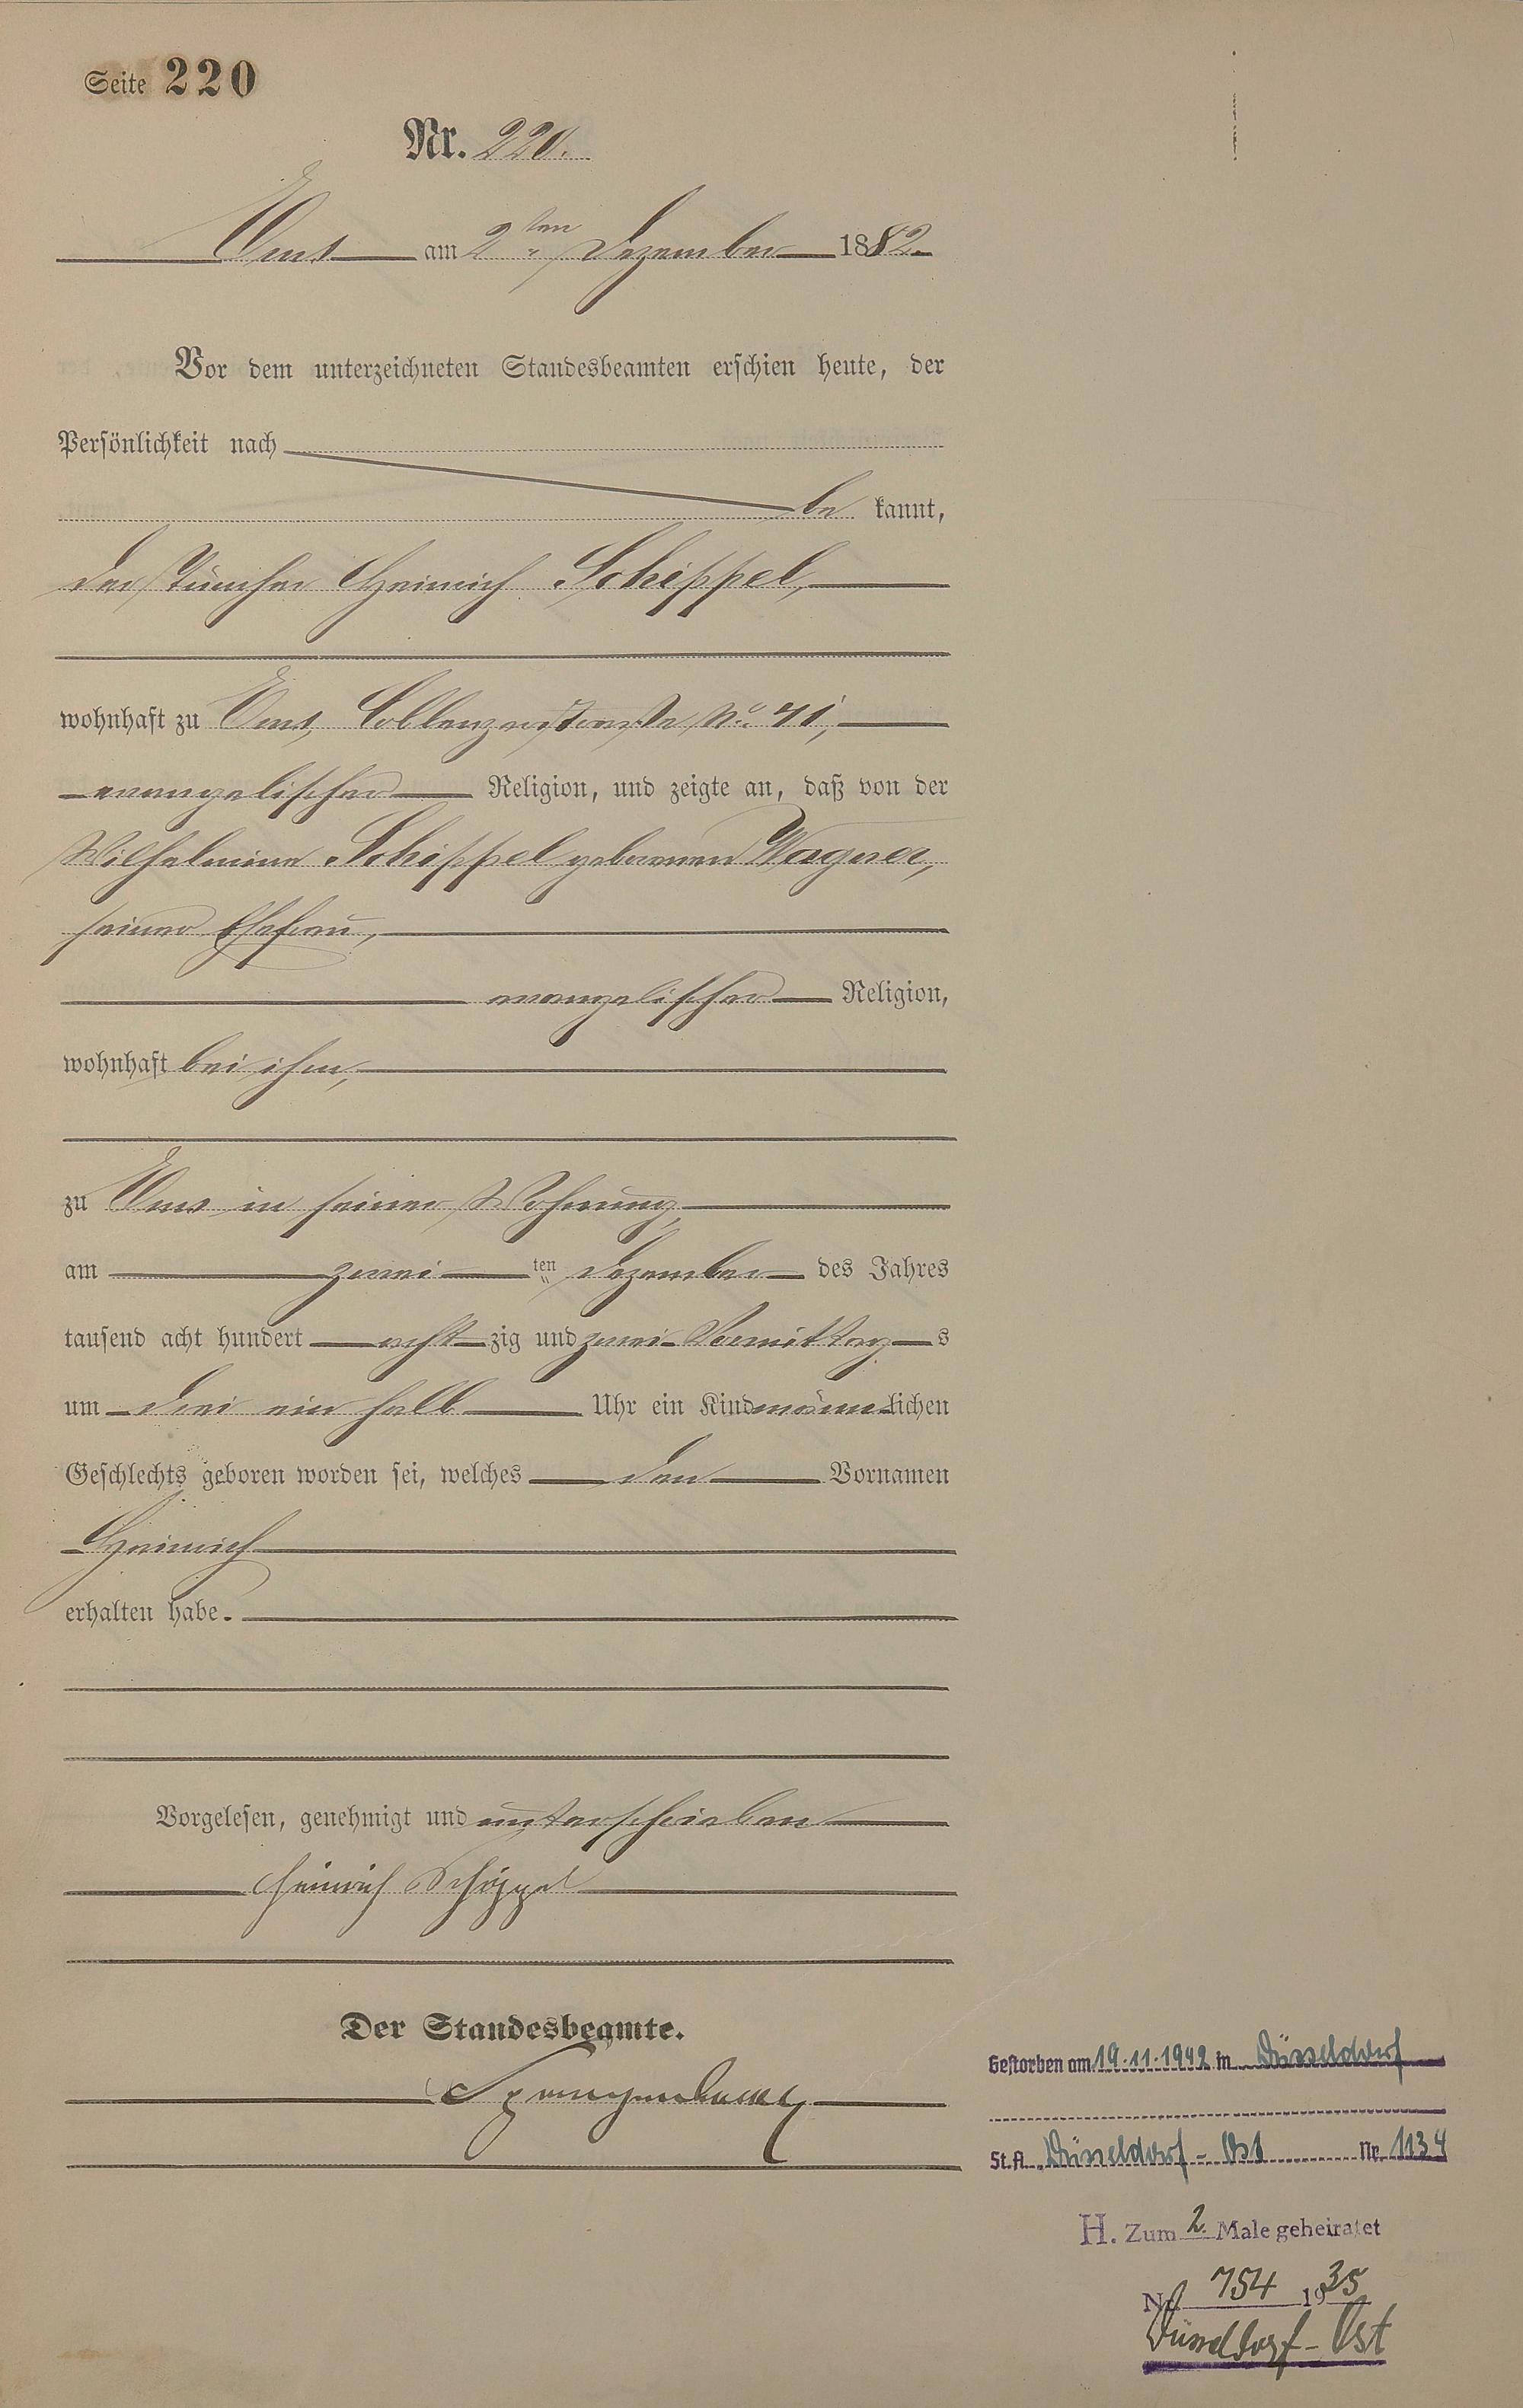 Seite 220
Nr. 220.
Ems am 2ten Dezember 1882.
Vor dem unterzeichneten Standesbeamten erschien heute, der
Persönlichkeit nach
be kannt,
der Tüncher Heinrich Schippel,
wohnhaft zu Ems, Coblenzerstraße No. 41,
evangelischer Religion, und zeigte an, daß von der
Wilhelmine Schippel geborenen Wagner,
seiner Ehefrau,
evangelischer Religion,
wohnhaft bei ihm,
zu Ems in seiner Wohnung,
am zwei ten Dezember des Jahres
tausend acht hundert acht zig und zwei Vormittag s
um drei ein halb Uhr ein Kind männlichen
Geschlechts geboren worden sei, welches den Vornamen
Heinrich
erhalten habe.
Vorgelesen, genehmigt und unterschrieben
Heinrich Schippel
Der Standesbeamte.
Gestorben am 19.11.1942 in Düsseldorf
St.A. Düsseldorf-Ost Nr. 1134
H. Zum 2. Male geheiratet
Nr. 754 1935
Düsseldorf-Ost